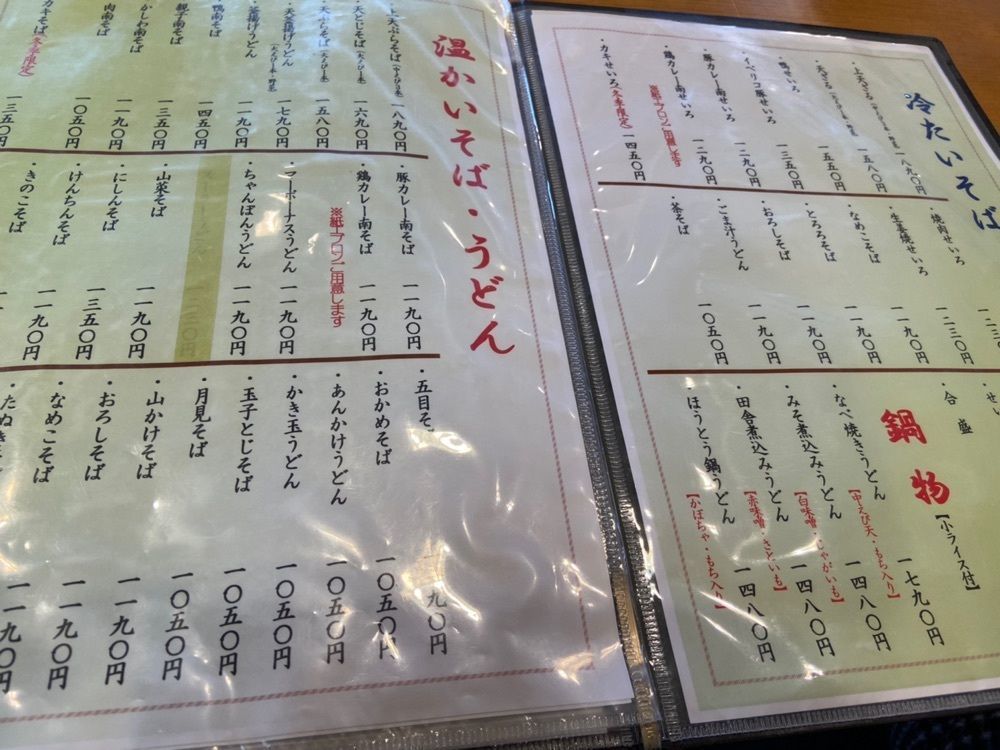 冷たいそば
・上天ざる
一八九〇円
・天ざる
一五八〇円
・鴨せいろ
一五五〇円
・イベリコ豚せいろ
一三五〇円
・豚カレー南せいろ
一二九〇円
・鶏カレー南せいろ
一二九〇円
※紙エプロンご用意します
・カキせいろ(冬季限定)
一四五〇円
・焼肉せいろ
一二三〇円
・生姜焼せいろ
一一九〇円
・なめこそば
一一九〇円
・とろろそば
一一九〇円
・おろしそば
一一九〇円
・ごま汁うどん
一一九〇円
・茶そば
一〇五〇円
・合盛
鍋物
【小ライス付】
・なべ焼きうどん
【中えび天・もち入り】
一七九〇円
・みそ煮込みうどん
【白味噌・じゃがいも】
一四八〇円
・田舎煮込みうどん
【赤味噌・さといも】
一四八〇円
・ほうとう鍋うどん
【かぼちゃ・もち入り】
一四八〇円
温かいそば・うどん
・上天ぷらそば
一八九〇円
・天とじそば
一六九〇円
・天ぷらそば
一五八〇円
・天釜揚げうどん
一七九〇円
・釜揚げうどん
一一九〇円
・鴨南そば
一四五〇円
親子南そば
一三五〇円
かしわ南そば
一一九〇円
肉南そば
一〇五〇円
カキそば
冬季限定
一三五〇円
・豚カレー南そば
一一九〇円
・鶏カレー南そば
一一九〇円
※紙エプロンご用意します
・マーボーナスうどん
一一九〇円
・ちゃんぽんうどん
一一九〇円
・山菜そば
一一九〇円
・にしんそば
一三五〇円
・けんちんそば
一一九〇円
・きのこそば
・五目そ
九〇円
・おかめそば
一〇五〇円
・あんかけうどん
一〇五〇円
・かき玉うどん
一〇五〇円
・玉子とじそば
一〇五〇円
・月見そば
一〇五〇円
・山かけそば
一一九〇円
・おろしそば
一一九〇円
・なめこそば
一一九〇円
・たぬき